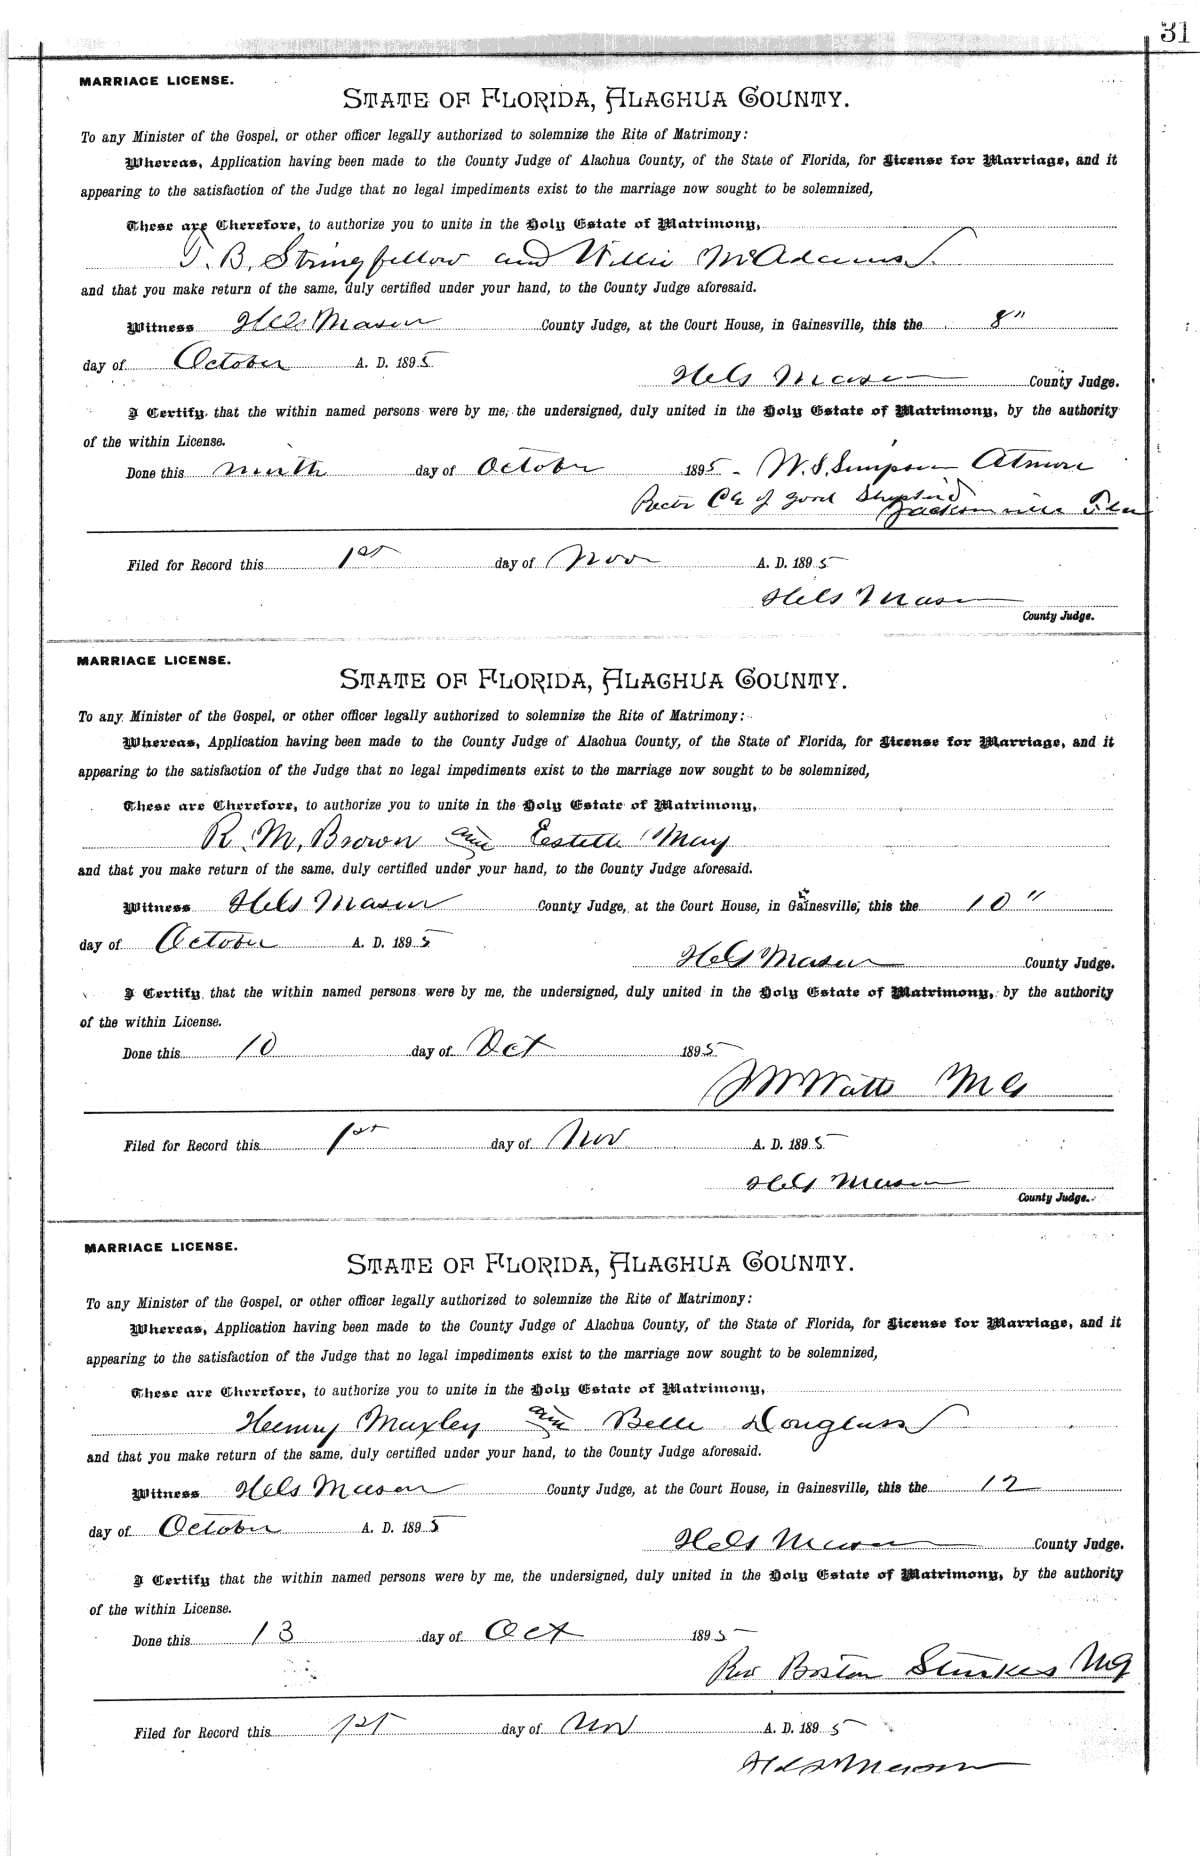 31
MARRIAGE LICENSE.
STATE OF FLORIDA, ALACHUA COUNTY.
To any Minister of the Gospel, or other officer legally authorized to solemnize the Rite of Matrimony:
Whereas, Application having been made to the County Judge of Alachua County, of the State of Florida, for License for Marriage, and it
appearing to the satisfaction of the Judge that no legal impediments exist to the marriage now sought to be solemnized,
These are Therefore, to authorize you to unite in the Holy Estate of Matrimony,
T. B. Stringfellow and Willie McAdams
and that you make return of the same, duly certified under your hand, to the County Judge aforesaid.
Witness H.G. Mason County Judge, at the Court House, in Gainesville, this the 8"
day of October A. D. 1895
H.G. Mason County Judge.
I Certify that the within named persons were by me, the undersigned, duly united in the Holy Estate of Matrimony, by the authority
of the within License.
Done this ninth day of October 1895 - W. S. Simpson Atmore
Rector Ch of Good Shepherd
Jacksonville Fla
Filed for Record this 1st day of Nov A. D. 1895
H.G. Mason
County Judge.
MARRIAGE LICENSE.
STATE OF FLORIDA, ALACHUA COUNTY.
To any Minister of the Gospel, or other officer legally authorized to solemnize the Rite of Matrimony:
Whereas, Application having been made to the County Judge of Alachua County, of the State of Florida, for License for Marriage, and it
appearing to the satisfaction of the Judge that no legal impediments exist to the marriage now sought to be solemnized,
These are Therefore, to authorize you to unite in the Holy Estate of Matrimony,
R. M. Brown and Estelle May
and that you make return of the same, duly certified under your hand, to the County Judge aforesaid.
Witness H.G. Mason County Judge, at the Court House, in Gainesville, this the 10"
day of October A. D. 1895
H.G. Mason County Judge.
I Certify that the within named persons were by me, the undersigned, duly united in the Holy Estate of Matrimony, by the authority
of the within License.
Done this 10 day of Oct 1895
J W Watts M G
Filed for Record this 1st day of Nov A. D. 1895
H.G. Mason
County Judge.
MARRIAGE LICENSE.
STATE OF FLORIDA, ALACHUA COUNTY.
To any Minister of the Gospel, or other officer legally authorized to solemnize the Rite of Matrimony:
Whereas, Application having been made to the County Judge of Alachua County, of the State of Florida, for License for Marriage, and it
appearing to the satisfaction of the Judge that no legal impediments exist to the marriage now sought to be solemnized,
These are Therefore, to authorize you to unite in the Holy Estate of Matrimony,
Henry Maxley and Belle Douglass
and that you make return of the same, duly certified under your hand, to the County Judge aforesaid.
Witness H.G. Mason County Judge, at the Court House, in Gainesville, this the 12
day of October A. D. 1895
H.G. Mason County Judge.
I Certify that the within named persons were by me, the undersigned, duly united in the Holy Estate of Matrimony, by the authority
of the within License.
Done this 13 day of Oct 1895
Rev Boston Sturkes M G
Filed for Record this 1st day of Nov A. D. 1895
H.G. Mason